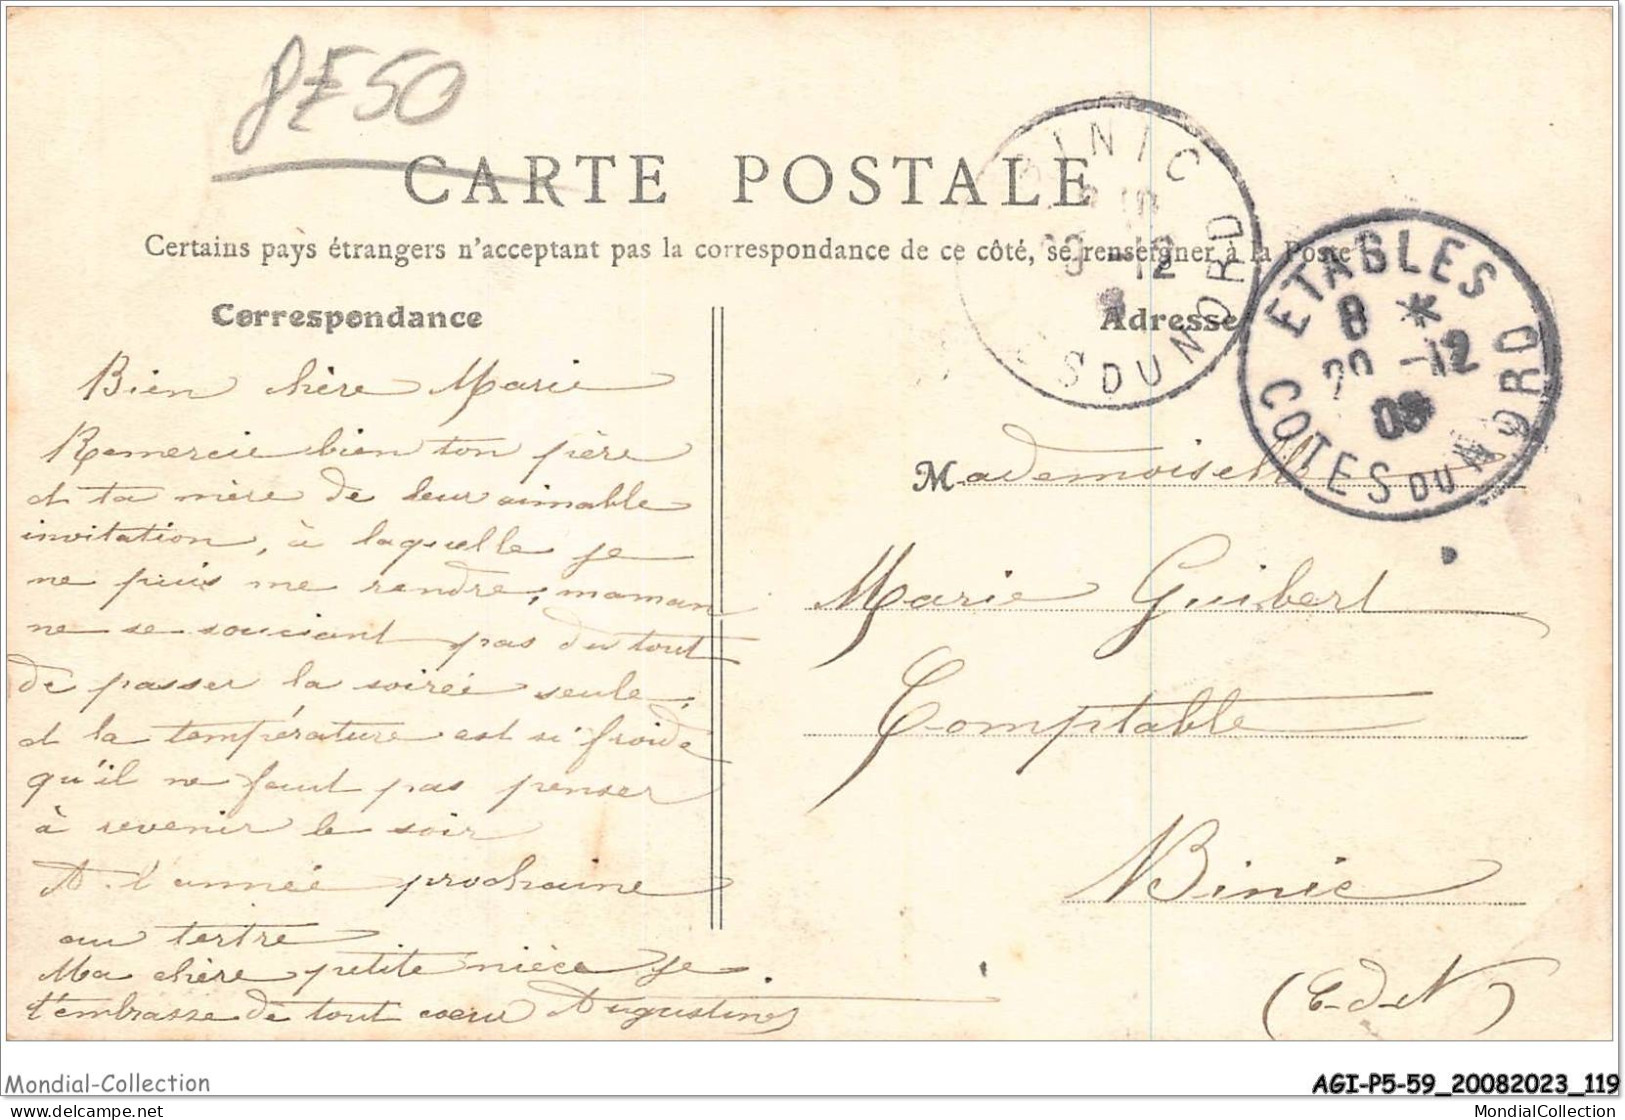 8E50
CARTE POSTALE
Certains pays étrangers n'acceptant pas la correspondance de ce côté, se renseigner à la Poste
Correspondance
Adresse
BINIC
-12
S DU NORD
ETABLES
8 *
20 -12
09
COTES DU NORD
Bien chère Marie
Remercie bien ton père
et ta mère de leur aimable
invitation, à laquelle je
ne puis me rendre; maman
ne se souciant pas du tout
de passer la soirée seule,
et la température est si froide
qu'il ne faut pas penser
à revenir le soir
A l'année prochaine
au tertre
Ma chère petite nièce je
t'embrasse de tout cœur Augustine
Mademoiselle
Marie Guibert
Comptable
Binic
(C-d-N)
Mondial-Collection
AGI-P5-59_20082023_119
delcampe.net
MondialCollection